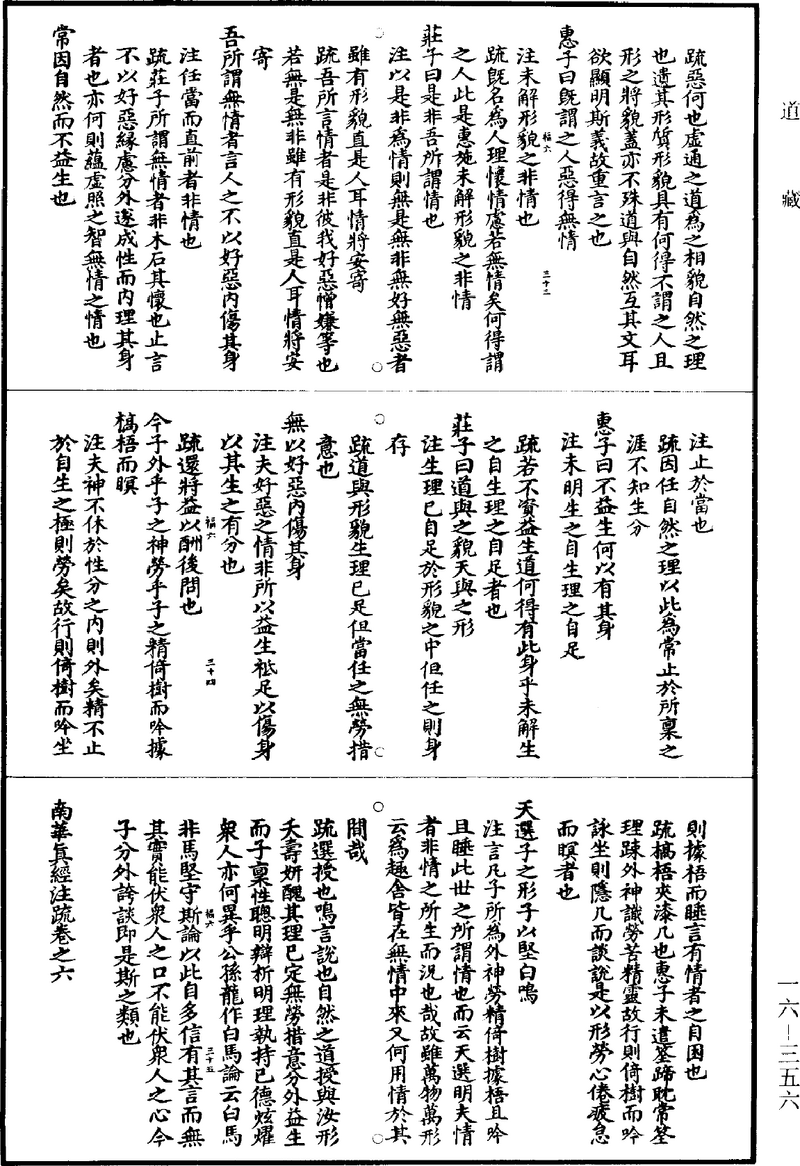 道藏
疏惡何也虛通之道為之相貌自然之理
也遺其形質形貌具有何得不謂之人且
形之將貌蓋亦不殊道與自然互其文耳
欲顯明斯義故重言之也
惠子曰既謂之人惡得無情
注未解形貌之非情也
疏既名為人理懷情慮若無情矣何得謂
之人此是惠施未解形貌之非情
莊子曰是非吾所謂情也
注以是非為情則無是無非無好無惡者
雖有形貌直是人耳情將安寄
疏吾所言情者是非彼我好惡憎嫌等也
若無是無非雖有形貌直是人耳情將安
寄
吾所謂無情者言人之不以好惡內傷其身
注任當而直前者非情也
疏莊子所謂無情者非木石其懷也止言
不以好惡緣慮分外遂成性而內理其身
者也亦何則蘊虛照之智無情之情也
常因自然而不益生也
福六
三十三
注止於當也
疏因任自然之理以此為常止於所稟之
涯不知生分
惠子曰不益生何以有其身
注未明生之自生理之自足
疏若不資益生道何得有此身乎未解生
之自生理之自足者也
莊子曰道與之貌天與之形
注生理已自足於形貌之中但任之則身
存
疏道與形貌生理已足但當任之無勞措
意也
無以好惡內傷其身
注夫好惡之情非所以益生祇足以傷身
以其生之有分也
疏還將益以酬後問也
今子外乎子之神勞乎子之精倚樹而吟據
槁梧而瞑
注夫神不休於性分之內則外矣精不止
於自生之極則勞矣故行則倚樹而吟坐
福六
三十四
則據梧而睡言有情者之自困也
疏槁梧夾漆几也惠子未遣筌蹄耽常筌
理疎外神識勞苦精靈故行則倚樹而吟
詠坐則隱几而談說是以形勞心倦疲怠
而瞑者也
天選子之形子以堅白鳴
注言凡子所為外神勞精倚樹據梧且吟
且睡此世之所謂情也而云天選明夫情
者非情之所生而況也哉故雖萬物萬形
云為趣舍皆在無情中來又何用情於其
間哉
疏選授也鳴言說也自然之道授與汝形
夭壽妍醜其理已定無勞措意分外益生
而子稟性聰明辯析明理執持己德炫燿
衆人亦何異乎公孫龍作白馬論云白馬
非馬堅守斯論以此自多信有其言而無
其實能伏衆人之口不能伏衆人之心今
子分外誇談即是斯之類也
南華真經注疏卷之六
福六
三十五
一六—三五六